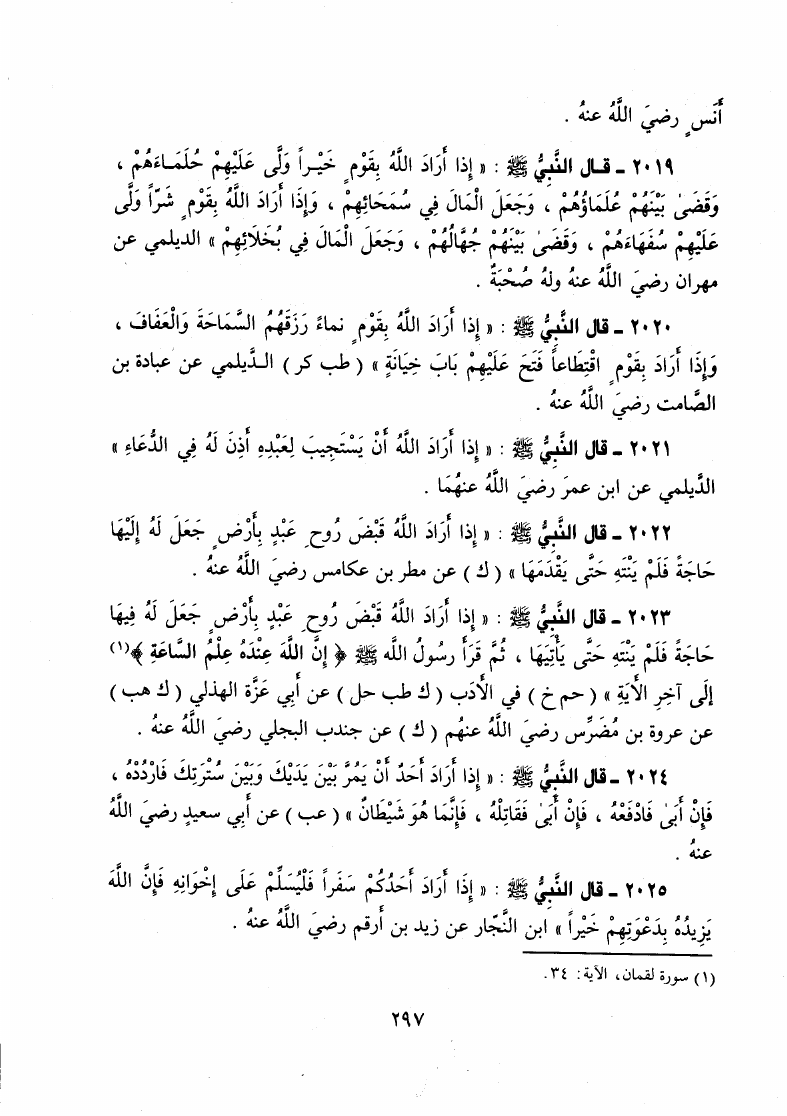 أَنَسٍ رضيَ اللَّهُ عنهُ .
٢٠١٩ ـ قـال النَّبِيُّ ﷺ : « إِذا أَرَادَ اللَّهُ بِقَوْمٍ خَيْـراً وَلَّى عَلَيْهِمْ حُلَمَـاءَهُمْ ،
وَقَضىٰ بَيْنَهُمْ عُلَمَاؤُهُمْ ، وَجَعَلَ الْمَالَ فِي سُمَحَائِهِمْ ، وَإِذَا أَرَادَ اللَّهُ بِقَومٍ شَرّاً وَلَّى
عَلَيْهِمْ سُفَهَاءَهُمْ ، وَقَضىٰ بَيْنَهُمْ جُهَّالُهُمْ ، وَجَعَلَ الْمَالَ فِي بُخَلَائِهِمْ » الديلمي عن
مهران رضيَ اللَّهُ عنهُ ولهُ صُحْبَةٌ .
٢٠٢٠ ـ قال النَّبِيُّ ﷺ : « إِذَا أَرَادَ اللَّهُ بِقَومٍ نماءً رَزَقَهُمُ السَّمَاحَةَ وَالْعَفَافَ ،
وَإِذَا أَرَادَ بِقَومٍ اقْتِطَاعاً فَتَحَ عَلَيْهِمْ بَابَ خِيَانَةٍ » ( طب كر ) الـدَّيلمي عن عبادة بن
الصَّامت رضيَ اللَّهُ عنهُ .
٢٠٢١ ـ قال النَّبِيُّ ﷺ : « إِذَا أَرَادَ اللَّهُ أَنْ يَسْتَجِيبَ لِعَبْدِهِ أَذِنَ لَهُ فِي الدُّعَاءِ »
الدَّيلمي عن ابن عمرَ رضيَ اللَّهُ عنهُمَا .
٢٠٢٢ ـ قال النَّبِيُّ ﷺ : « إِذا أَرَادَ اللَّهُ قَبْضَ رُوحِ عَبْدٍ بِأَرْضٍ جَعَلَ لَهُ إِلَيْهَا
حَاجَةً فَلَمْ يَنْتَهِ حَتَّى يَقْدَمَهَا » ( ك ) عن مطر بن عكامس رضيَ اللَّهُ عنهُ .
٢٠٢٣ ـ قال النَّبِيُّ ﷺ : « إِذا أَرَادَ اللَّهُ قَبْضَ رُوحِ عَبْدٍ بِأَرْضٍ جَعَلَ لَهُ فِيهَا
حَاجَةً فَلَمْ يَنْتَهِ حَتَّى يَأْتِيَهَا ، ثُمَّ قَرَأَ رسُولُ الله ﷺ ﴿ إِنَّ اللَّهَ عِنْدَهُ عِلْمُ السَّاعَةِ ﴾(١)
إِلى آخِرِ الْآيَةِ » ( حم خ ) في الأدَب ( ك طب حل ) عن أَبي عَزَّة الهذلي ( ك هب )
عن عروة بن مُضَرِّس رضيَ اللَّهُ عنهُم ( ك ) عن جندب البجلي رضيَ اللَّهُ عنهُ .
٢٠٢٤ ـ قال النَّبِيُّ ﷺ : « إِذا أَرَادَ أَحَدٌ أَنْ يَمُرَّ بَيْنَ يَدَيْكَ وَبَيْنَ سُتْرَتِكَ فَارْدُدْهُ ،
فَإِنْ أَبىٰ فَادْفَعْهُ ، فَإِنْ أَبىٰ فَقَاتِلْهُ ، فَإِنَّمَا هُوَ شَيْطَانٌ » ( عب ) عن أَبي سعيدٍ رضيَ اللَّهُ
عنهُ .
٢٠٢٥ ـ قال النَّبِيُّ ﷺ : « إِذا أَرَادَ أَحَدُكُمْ سَفَراً فَلْيُسَلِّمْ عَلَى إِخْوَانِهِ فَإِنَّ اللَّهَ
يَزِيدُهُ بِدَعْوَتِهِمْ خَيْراً » ابن النَّجَّار عن زيد بن أَرقم رضيَ اللَّهُ عنهُ .
(١) سورة لقمان، الآية: ٣٤.
٢٩٧